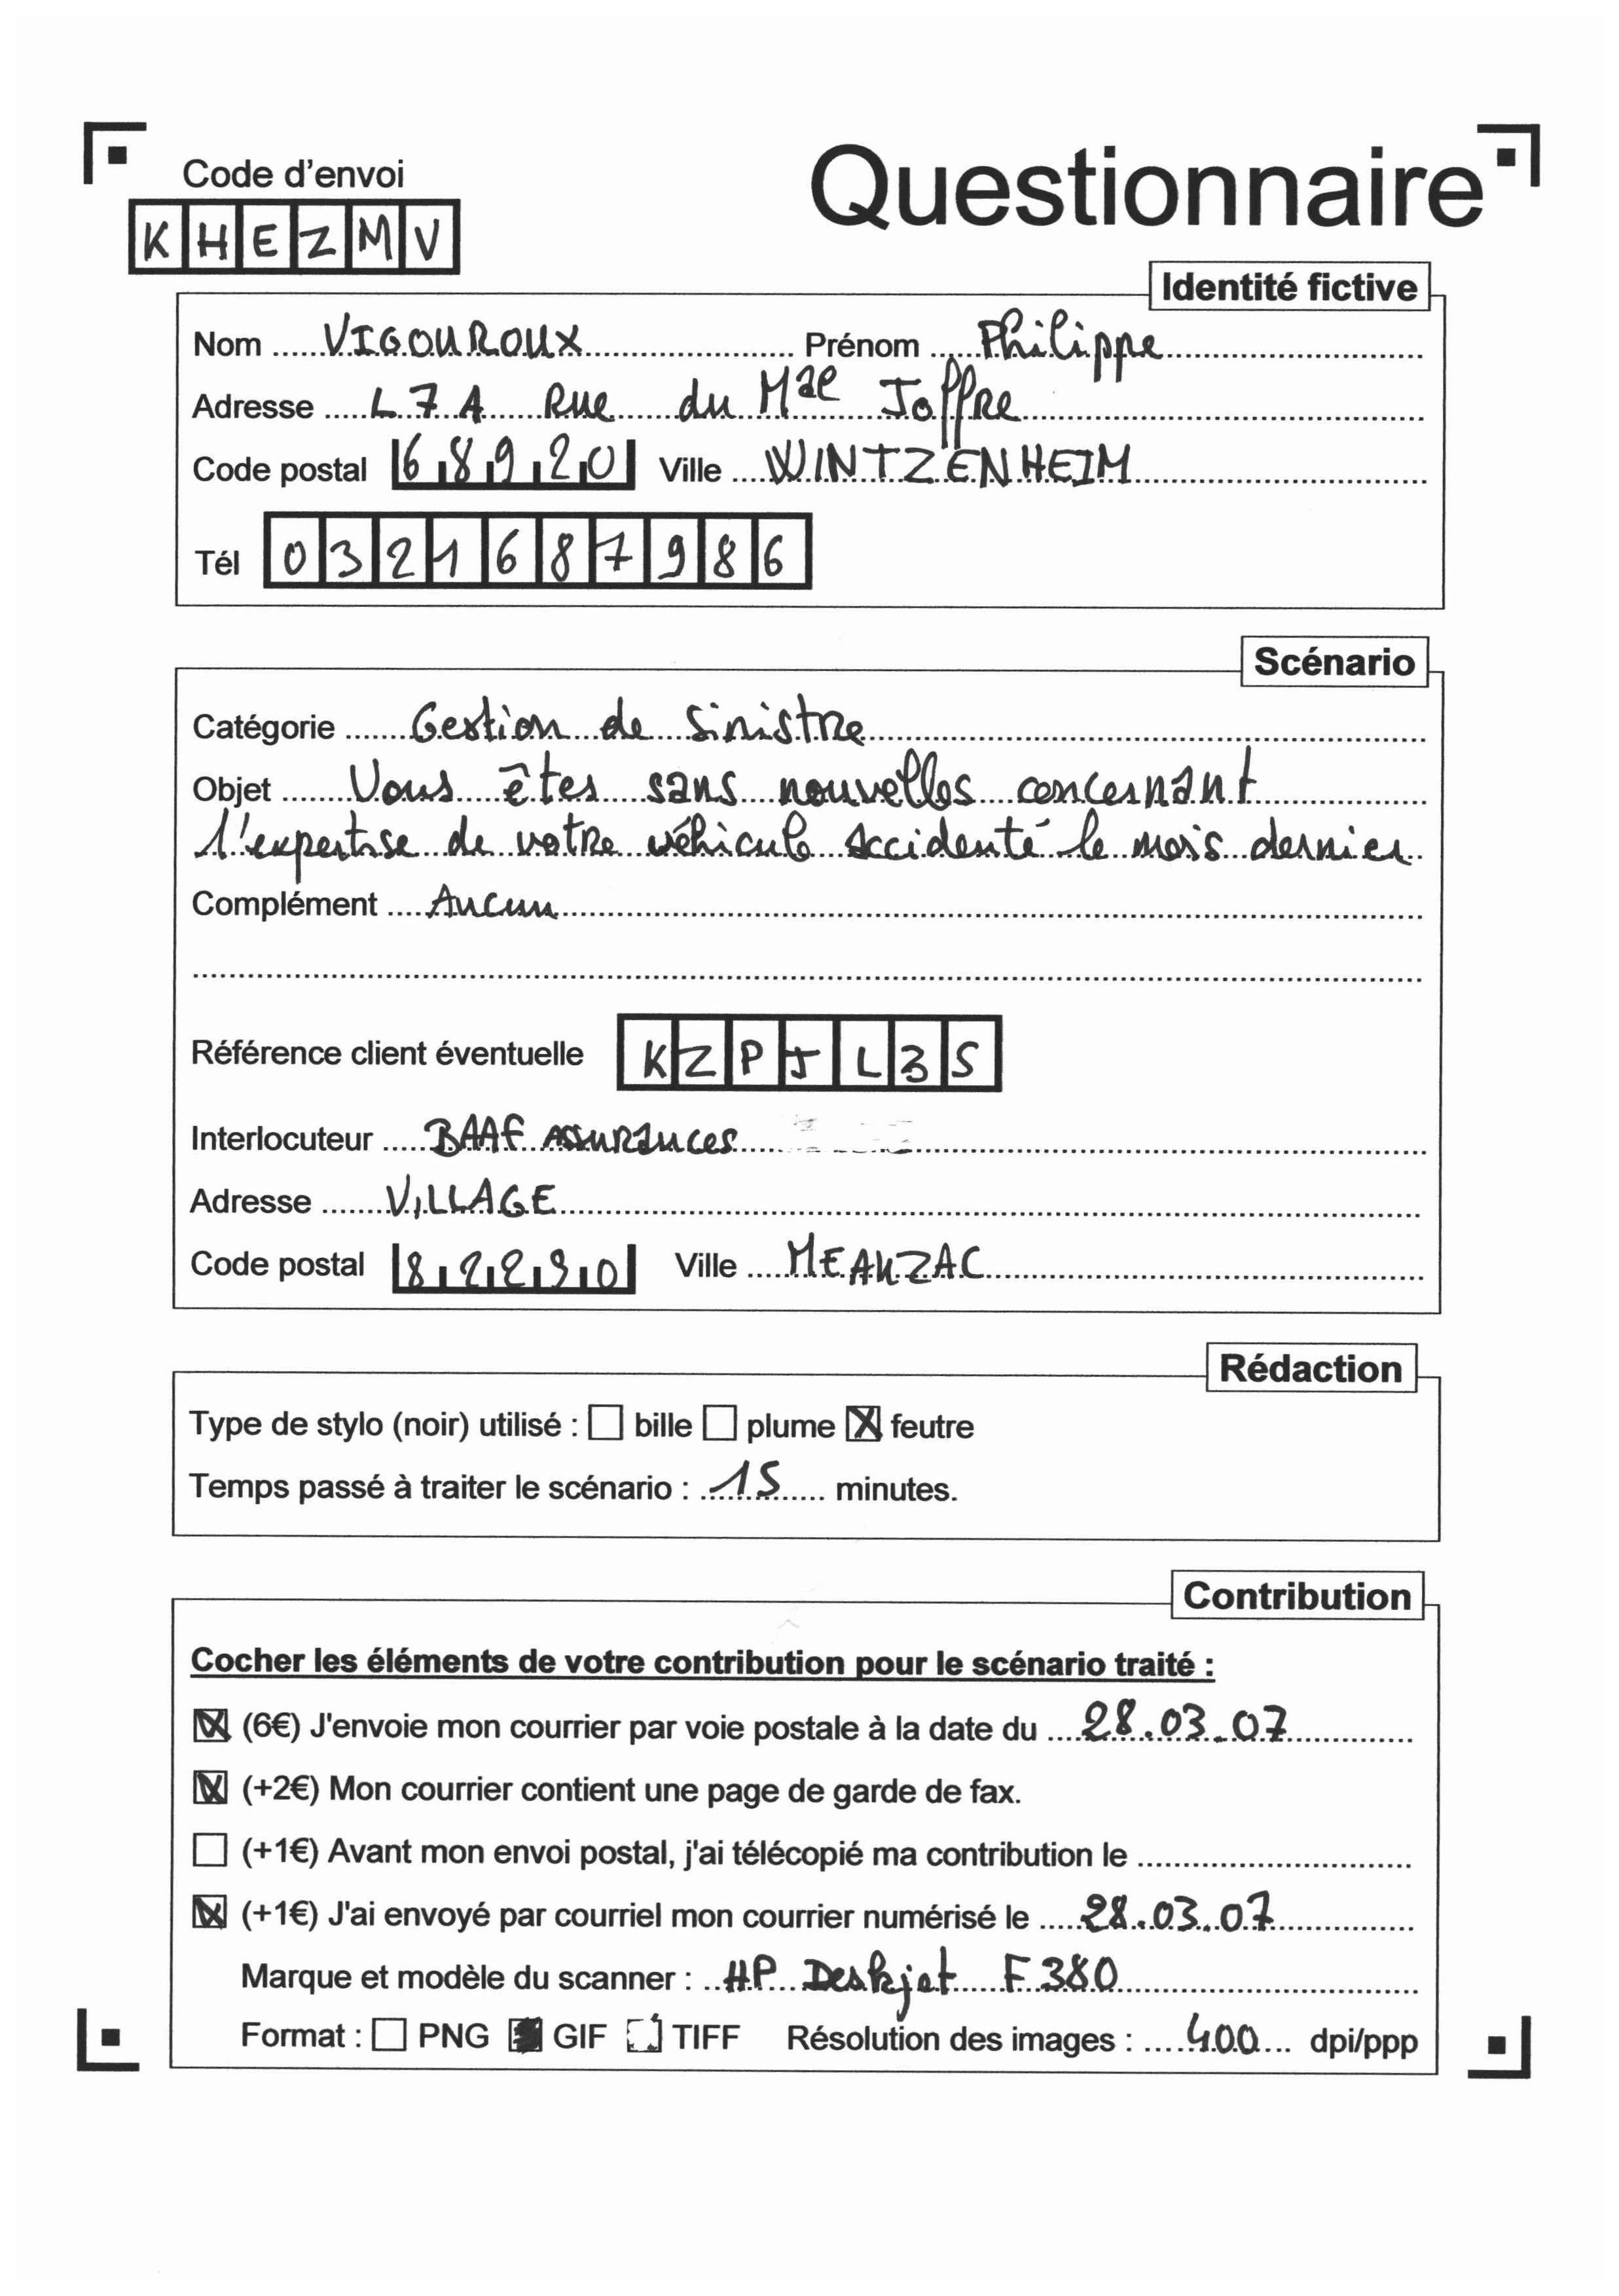 Code d'envoi
Questionnaire
KHEZMV
Identité fictive
Nom VIGOUROUX Prénom Philippe
Adresse L7A Rue du Mal Joffre
Code postal 68920 Ville WINTZENHEIM
Tél 0321687986
Scénario
Catégorie Gestion de Sinistre
Objet Vous êtes sans nouvelles concernant
l'expertise de votre véhicule accidenté le mois dernier
Complément Aucun
Référence client éventuelle KZPJL3S
Interlocuteur BAAF Assurances
Adresse VILLAGE
Code postal 82290 Ville MEAUZAC
Rédaction
Type de stylo (noir) utilisé : bille plume feutre
Temps passé à traiter le scénario : 15 minutes.
Contribution
Cocher les éléments de votre contribution pour le scénario traité :
(6€) J'envoie mon courrier par voie postale à la date du 28.03.07
(+2€) Mon courrier contient une page de garde de fax.
(+1€) Avant mon envoi postal, j'ai télécopié ma contribution le
(+1€) J'ai envoyé par courriel mon courrier numérisé le 28.03.07
Marque et modèle du scanner : HP Deskjet F380
Format : PNG GIF TIFF Résolution des images : 400 dpi/ppp